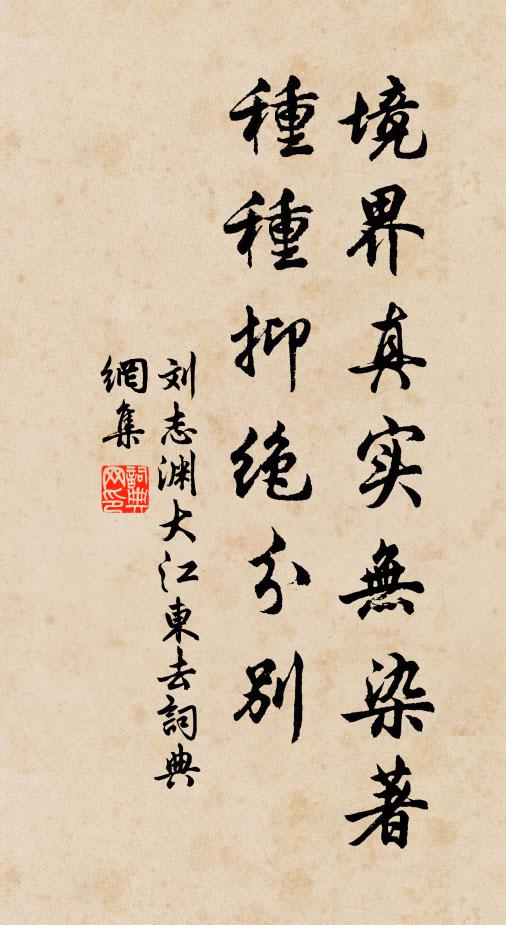 境界真实無染著
種種抑绝分别
刘志渊大江東去詞典
網集
詞典
网印